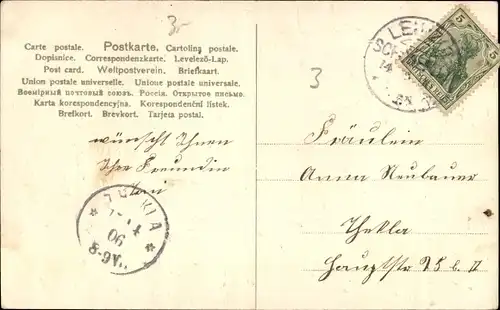 3-
Carte postale. Postkarte. Cartolina postale.
Dopisnice. Correspondenzkarte. Levelező-Lap.
Post card. Weltpostverein. Briefkaart.
Union postale universelle. Unione postale universale.
Всемірный почтовый союзъ. Россія. Открытое письмо.
Karta korespondencyjna. Korespondenční lístek.
Brefkort. Brevkort. Tarjeta postal.
wünscht Ihnen
Ihre Freundin
THEKLA
06
3
LEIPZIG
5
Fräulein
Anna Neubauer
Thekla
Hauptstr 25 b. II